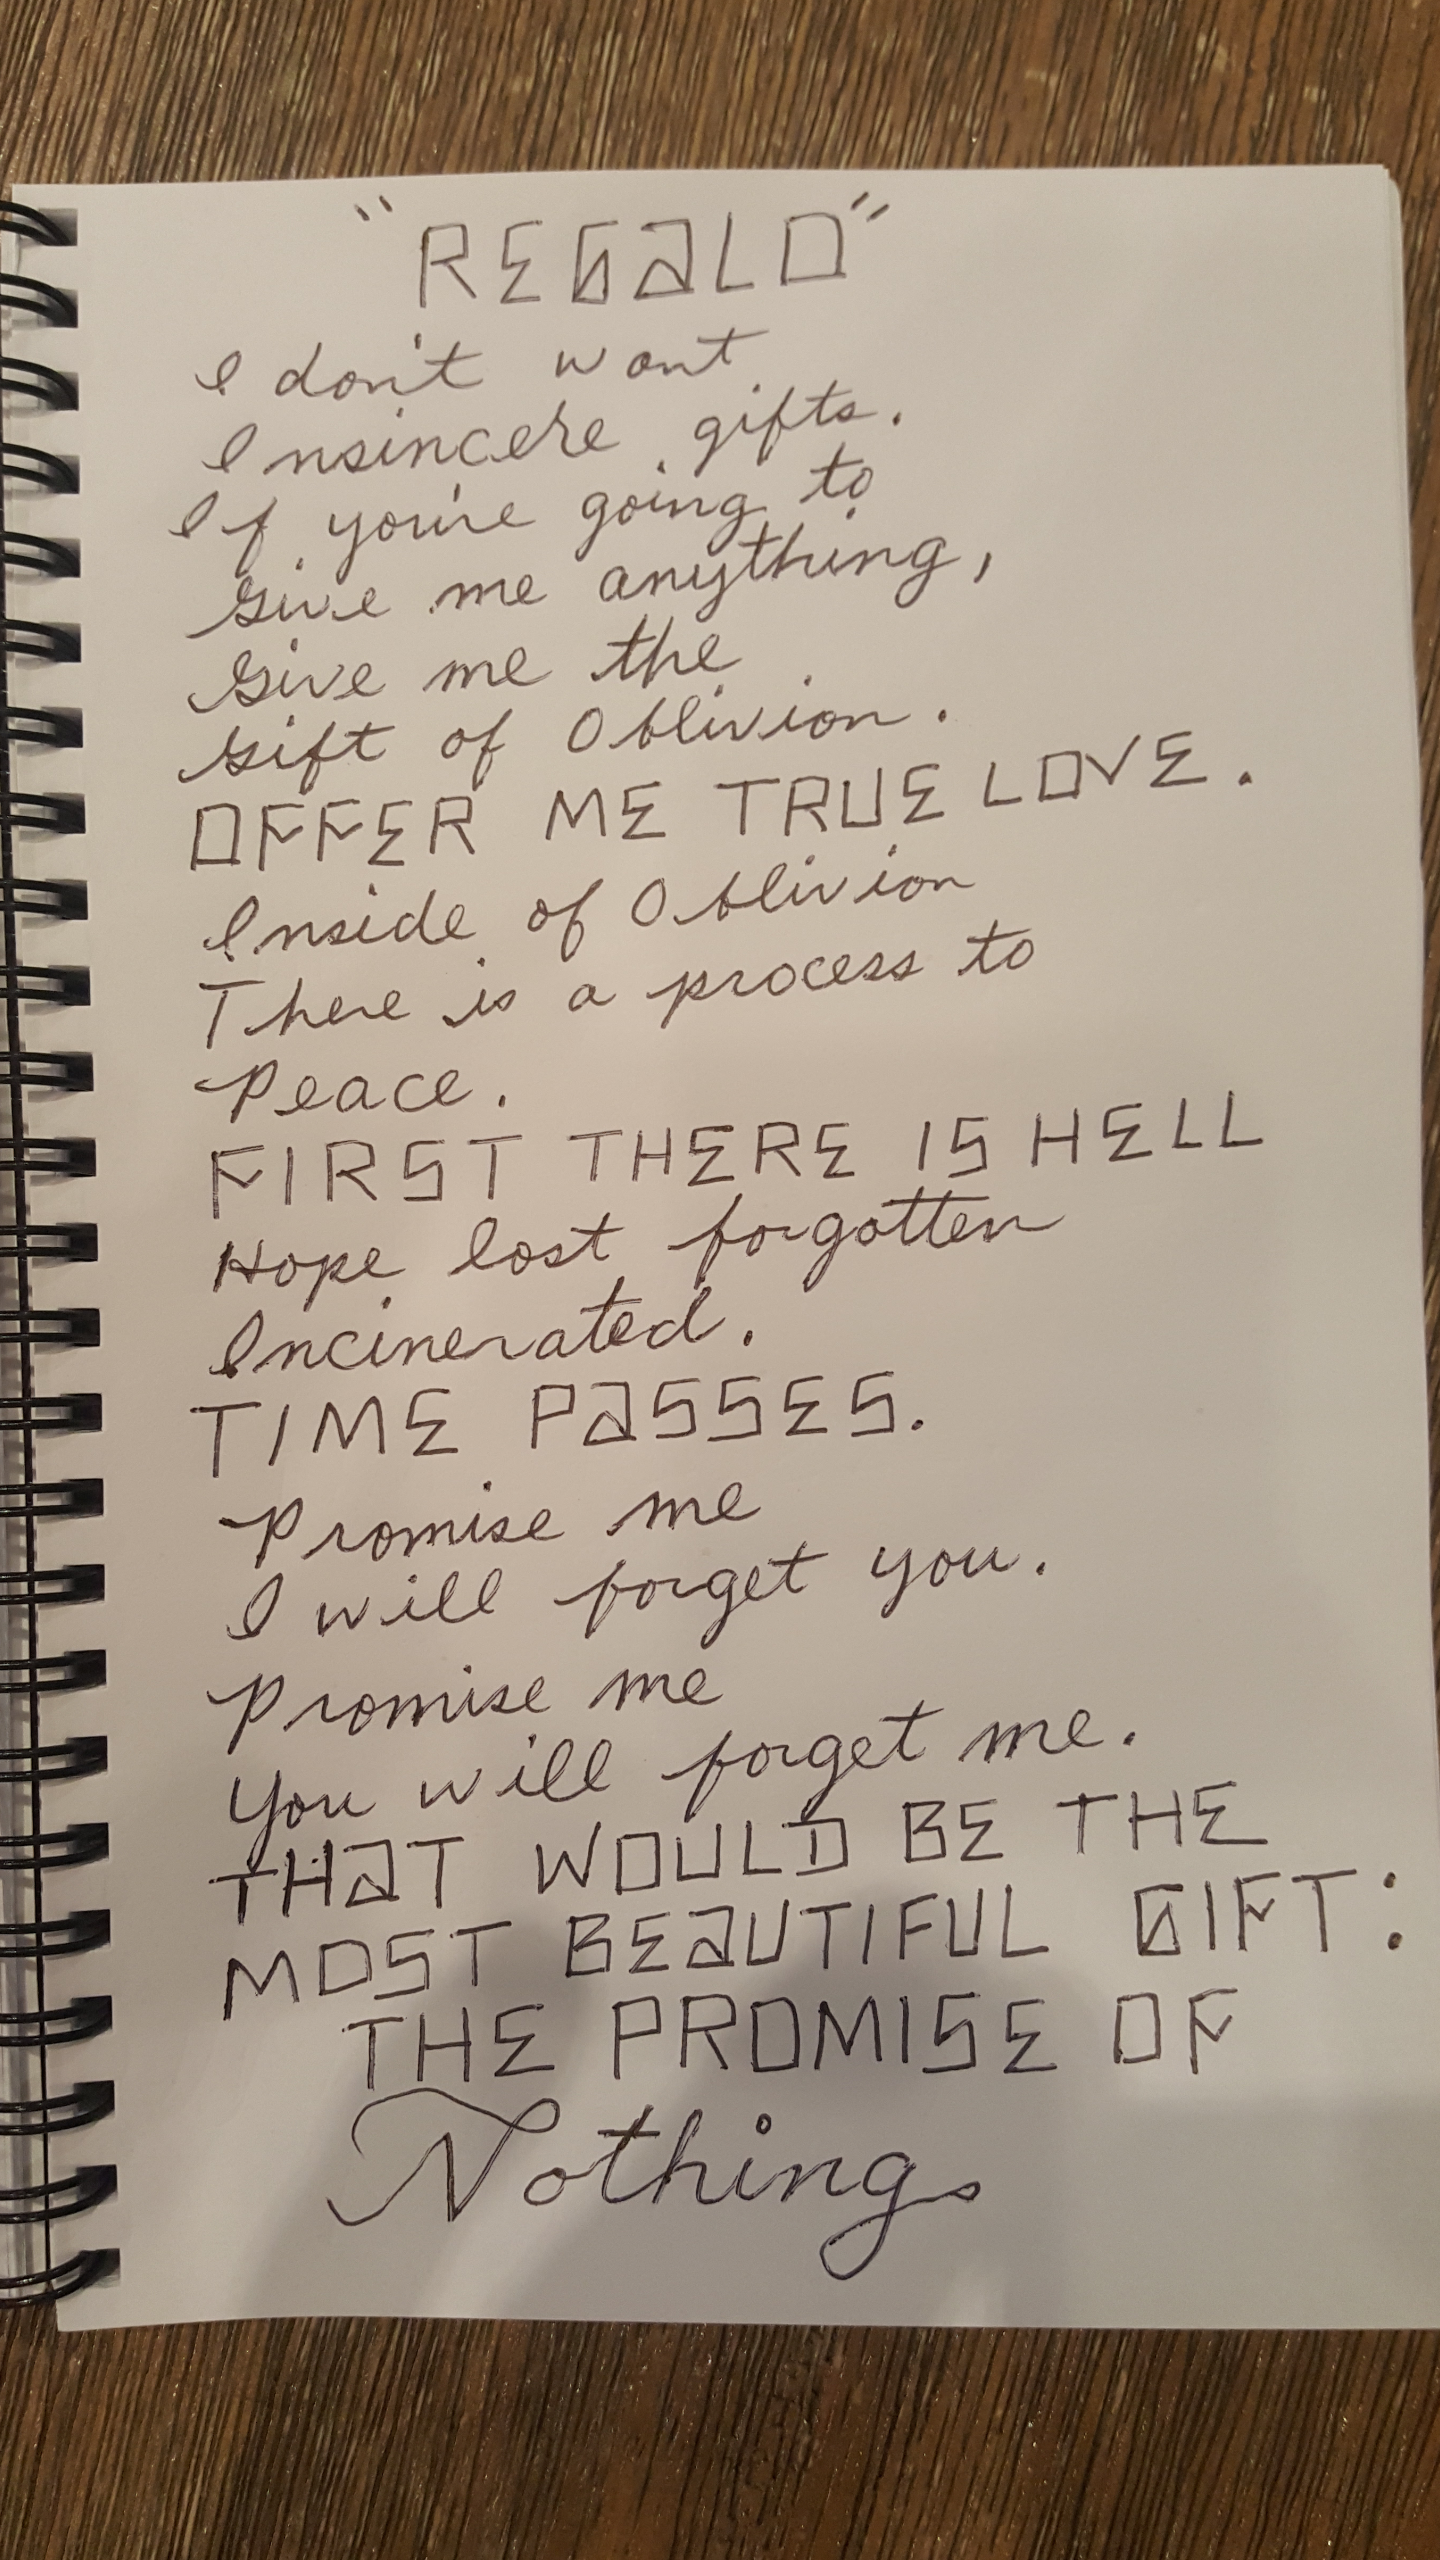 "REGaLO"
I don't want
Insincere gifts.
If you're going to
Give me anything,
Give me the
Gift of Oblivion.
OFFER ME TRUE LOVE.
Inside of Oblivion
There is a process to
Peace.
FIRST THERE IS HELL
Hope lost forgotten
Incinerated.
TIME PaSSES.
Promise me
I will forget you.
Promise me
You will forget me.
THaT WOULD BE THE
MOST BEaUTIFUL GIFT:
THE PROMISE OF
Nothing.